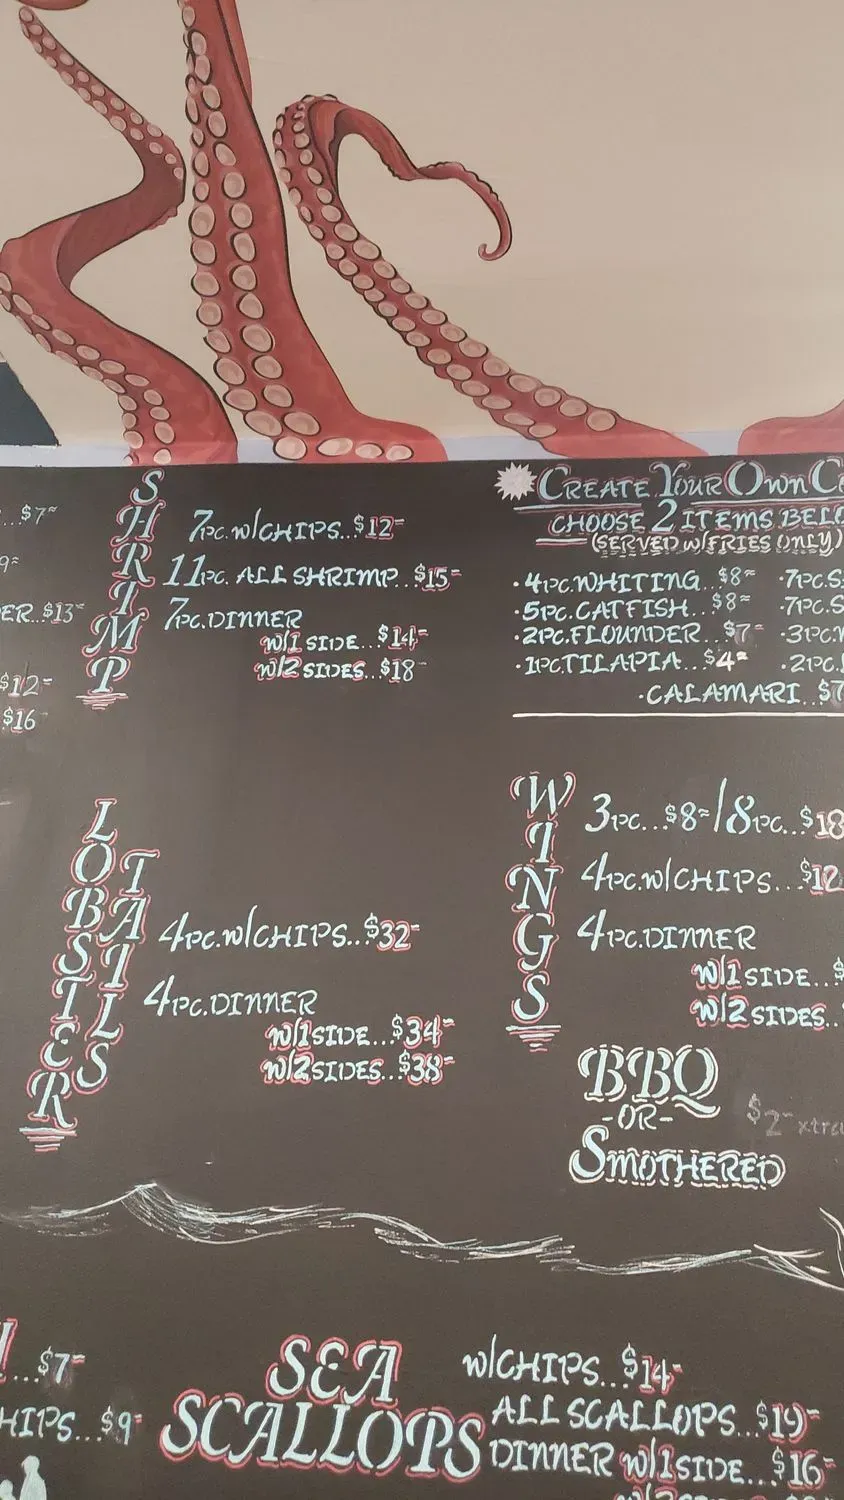 ...$7=
9=
ER..$13=
$12=
$16
SHRIMP
7PC. W/CHIPS...$12=
11PC. ALL SHRIMP..$15=
7PC. DINNER
W/1 SIDE...$14=
W/2 SIDES...$18=
CREATE YOUR OWN C
CHOOSE 2 ITEMS BELO
(SERVED W/FRIES ONLY)
• 4PC. WHITING...$8=
• 5PC. CATFISH...$8=
• 2PC. FLOUNDER...$7=
• 1PC. TILAPIA...$4=
• 7PC. S
• 7PC. S
• 3PC.
• 2PC.
• CALAMARI...$7
LOBSTER TAILS
4PC. W/CHIPS...$32=
4PC. DINNER
W/1 SIDE...$34=
W/2 SIDES...$38=
WINGS
3PC...$8=/8PC...$18
4PC. W/CHIPS...$12
4PC. DINNER
W/1 SIDE..$
W/2 SIDES..
BBQ
-OR-
SMOTHERED
$2= xtra
...$7=
HIPS...$9=
SEA
SCALLOPS
W/CHIPS...$14=
ALL SCALLOPS...$19=
DINNER W/1 SIDE...$16=